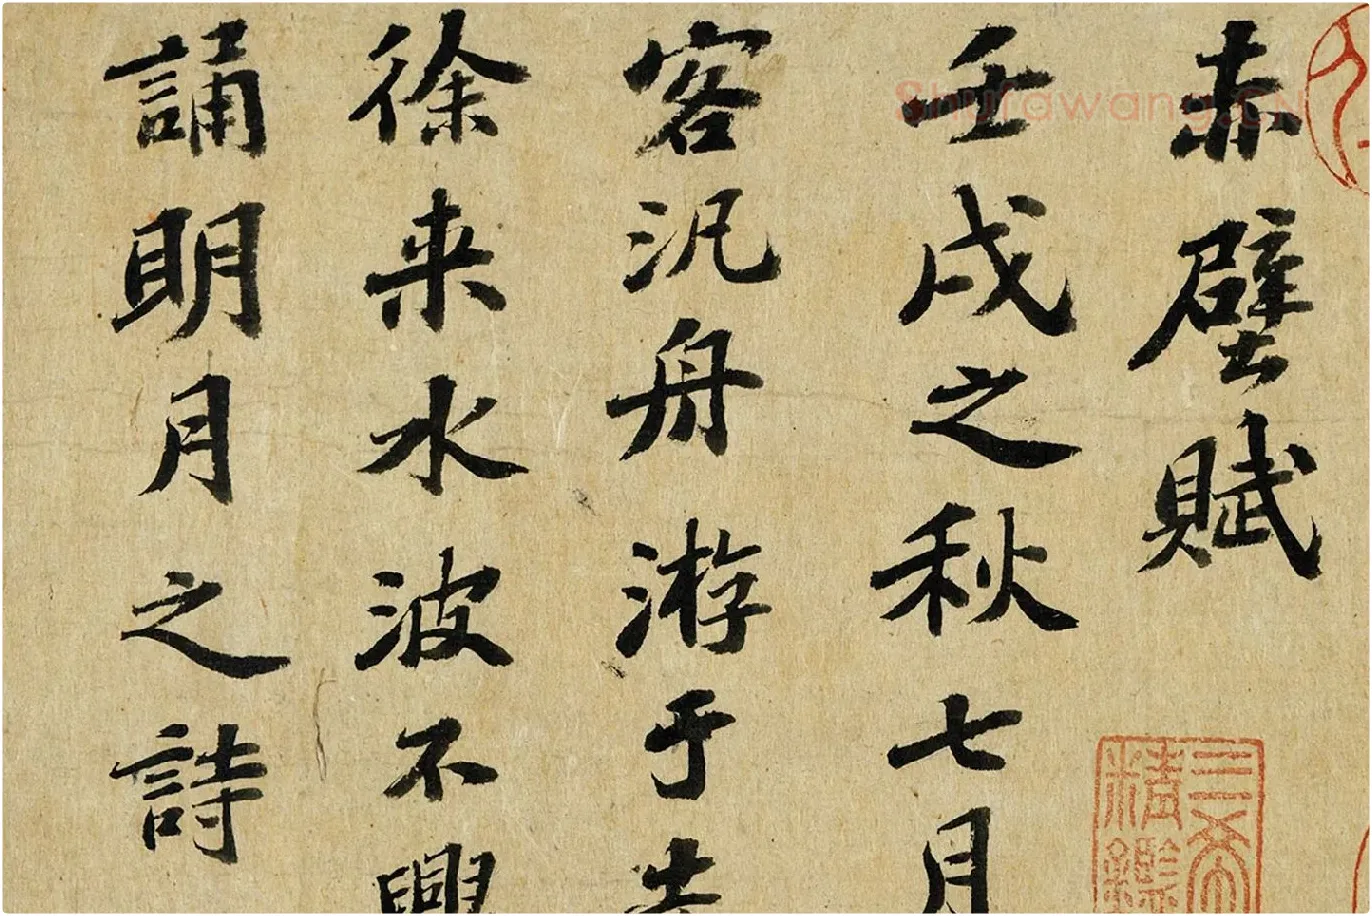 赤壁賦
壬戌之秋七月
客汎舟游于赤
徐来水波不興
誦明月之詩
三希
精鑑
Shufawang.CN